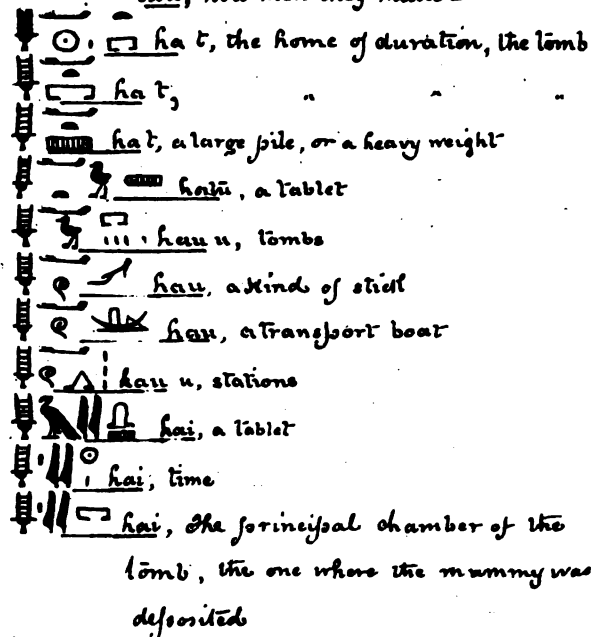 ha t, the home of duration, the tomb
ha t, " " "
ha t, a large pile, or a heavy weight
hatū, a tablet
hau u, tombs
hau, a kind of stick
hau, a transport boat
hau u, stations
hai, a tablet
hai, time
hai, the principal chamber of the
tomb, the one where the mummy was
deposited